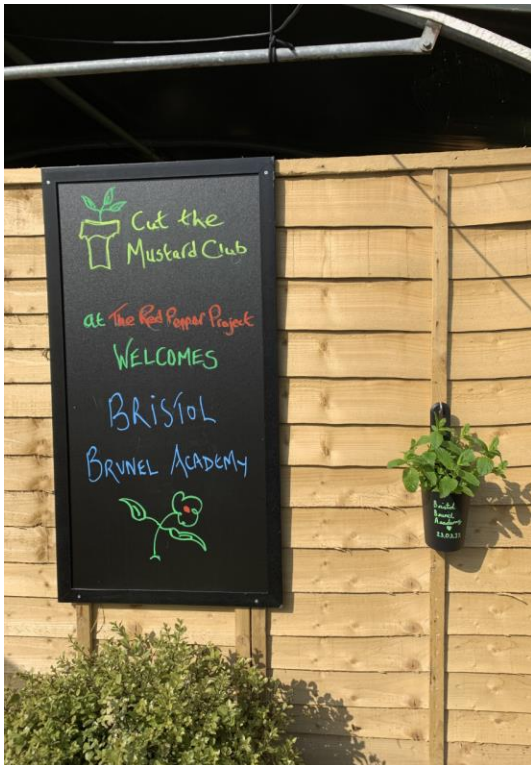 Cut the
Mustard Club
at The Red Pepper Project
WELCOMES
BRISTOL
BRUNEL ACADEMY
Bristol
Brunel
Academy